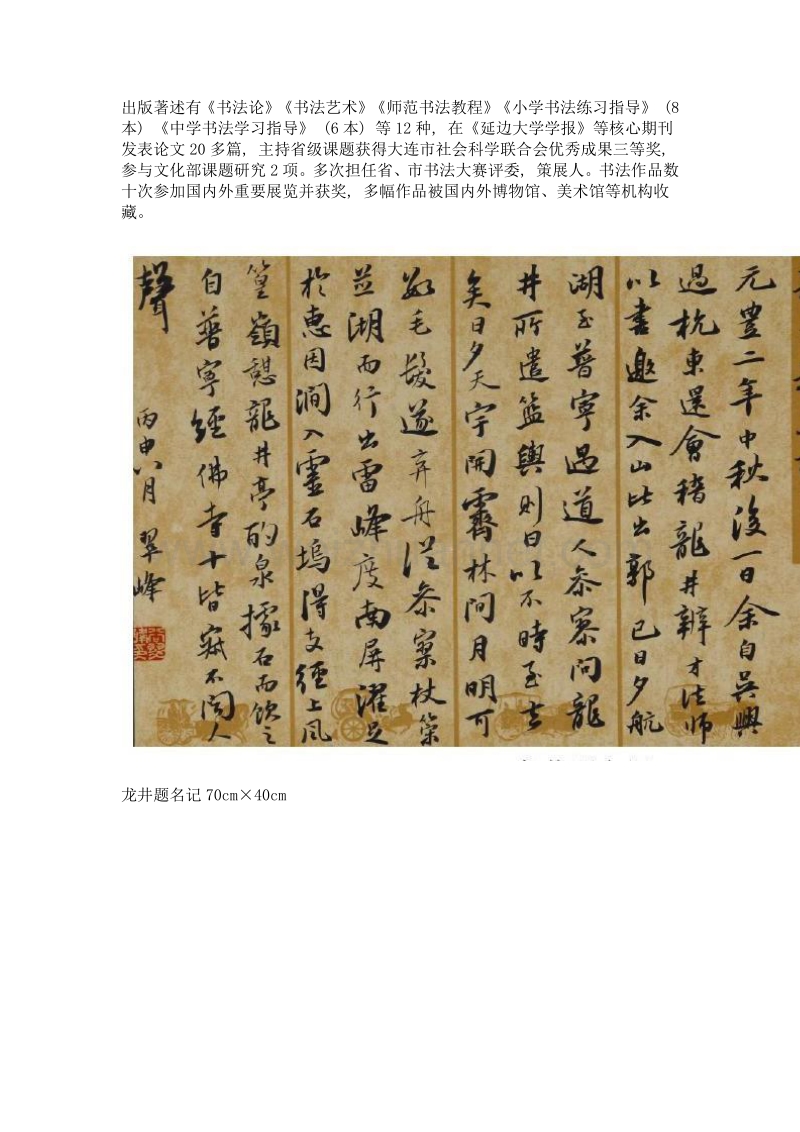 出版著述有《书法论》《书法艺术》《师范书法教程》《小学书法练习指导》（8
本）《中学书法学习指导》（6本）等12种，在《延边大学学报》等核心期刊
发表论文20多篇，主持省级课题获得大连市社会科学联合会优秀成果三等奖，
参与文化部课题研究2项。多次担任省、市书法大赛评委，策展人。书法作品数
十次参加国内外重要展览并获奖，多幅作品被国内外博物馆、美术馆等机构收
藏。
元豐二年中秋後一日余自吳興
過杭東還會稽龍井辨才法師
以書邀余入山比出郭已日夕航
湖至普寧遇道人參寥問龍
井所遣籃輿則曰以不時至去
矣是夕天宇開霽林間月明可
數毛髮遂弃舟從參寥杖策
並湖而行出雷峰度南屏濯足
於惠因澗入靈石塢得支徑上風
篁嶺憩龍井亭酌泉據石而飲之
自普寧經佛寺十皆寂不聞人
聲
丙申八月 翠峰
龙井题名记 70cm×40cm